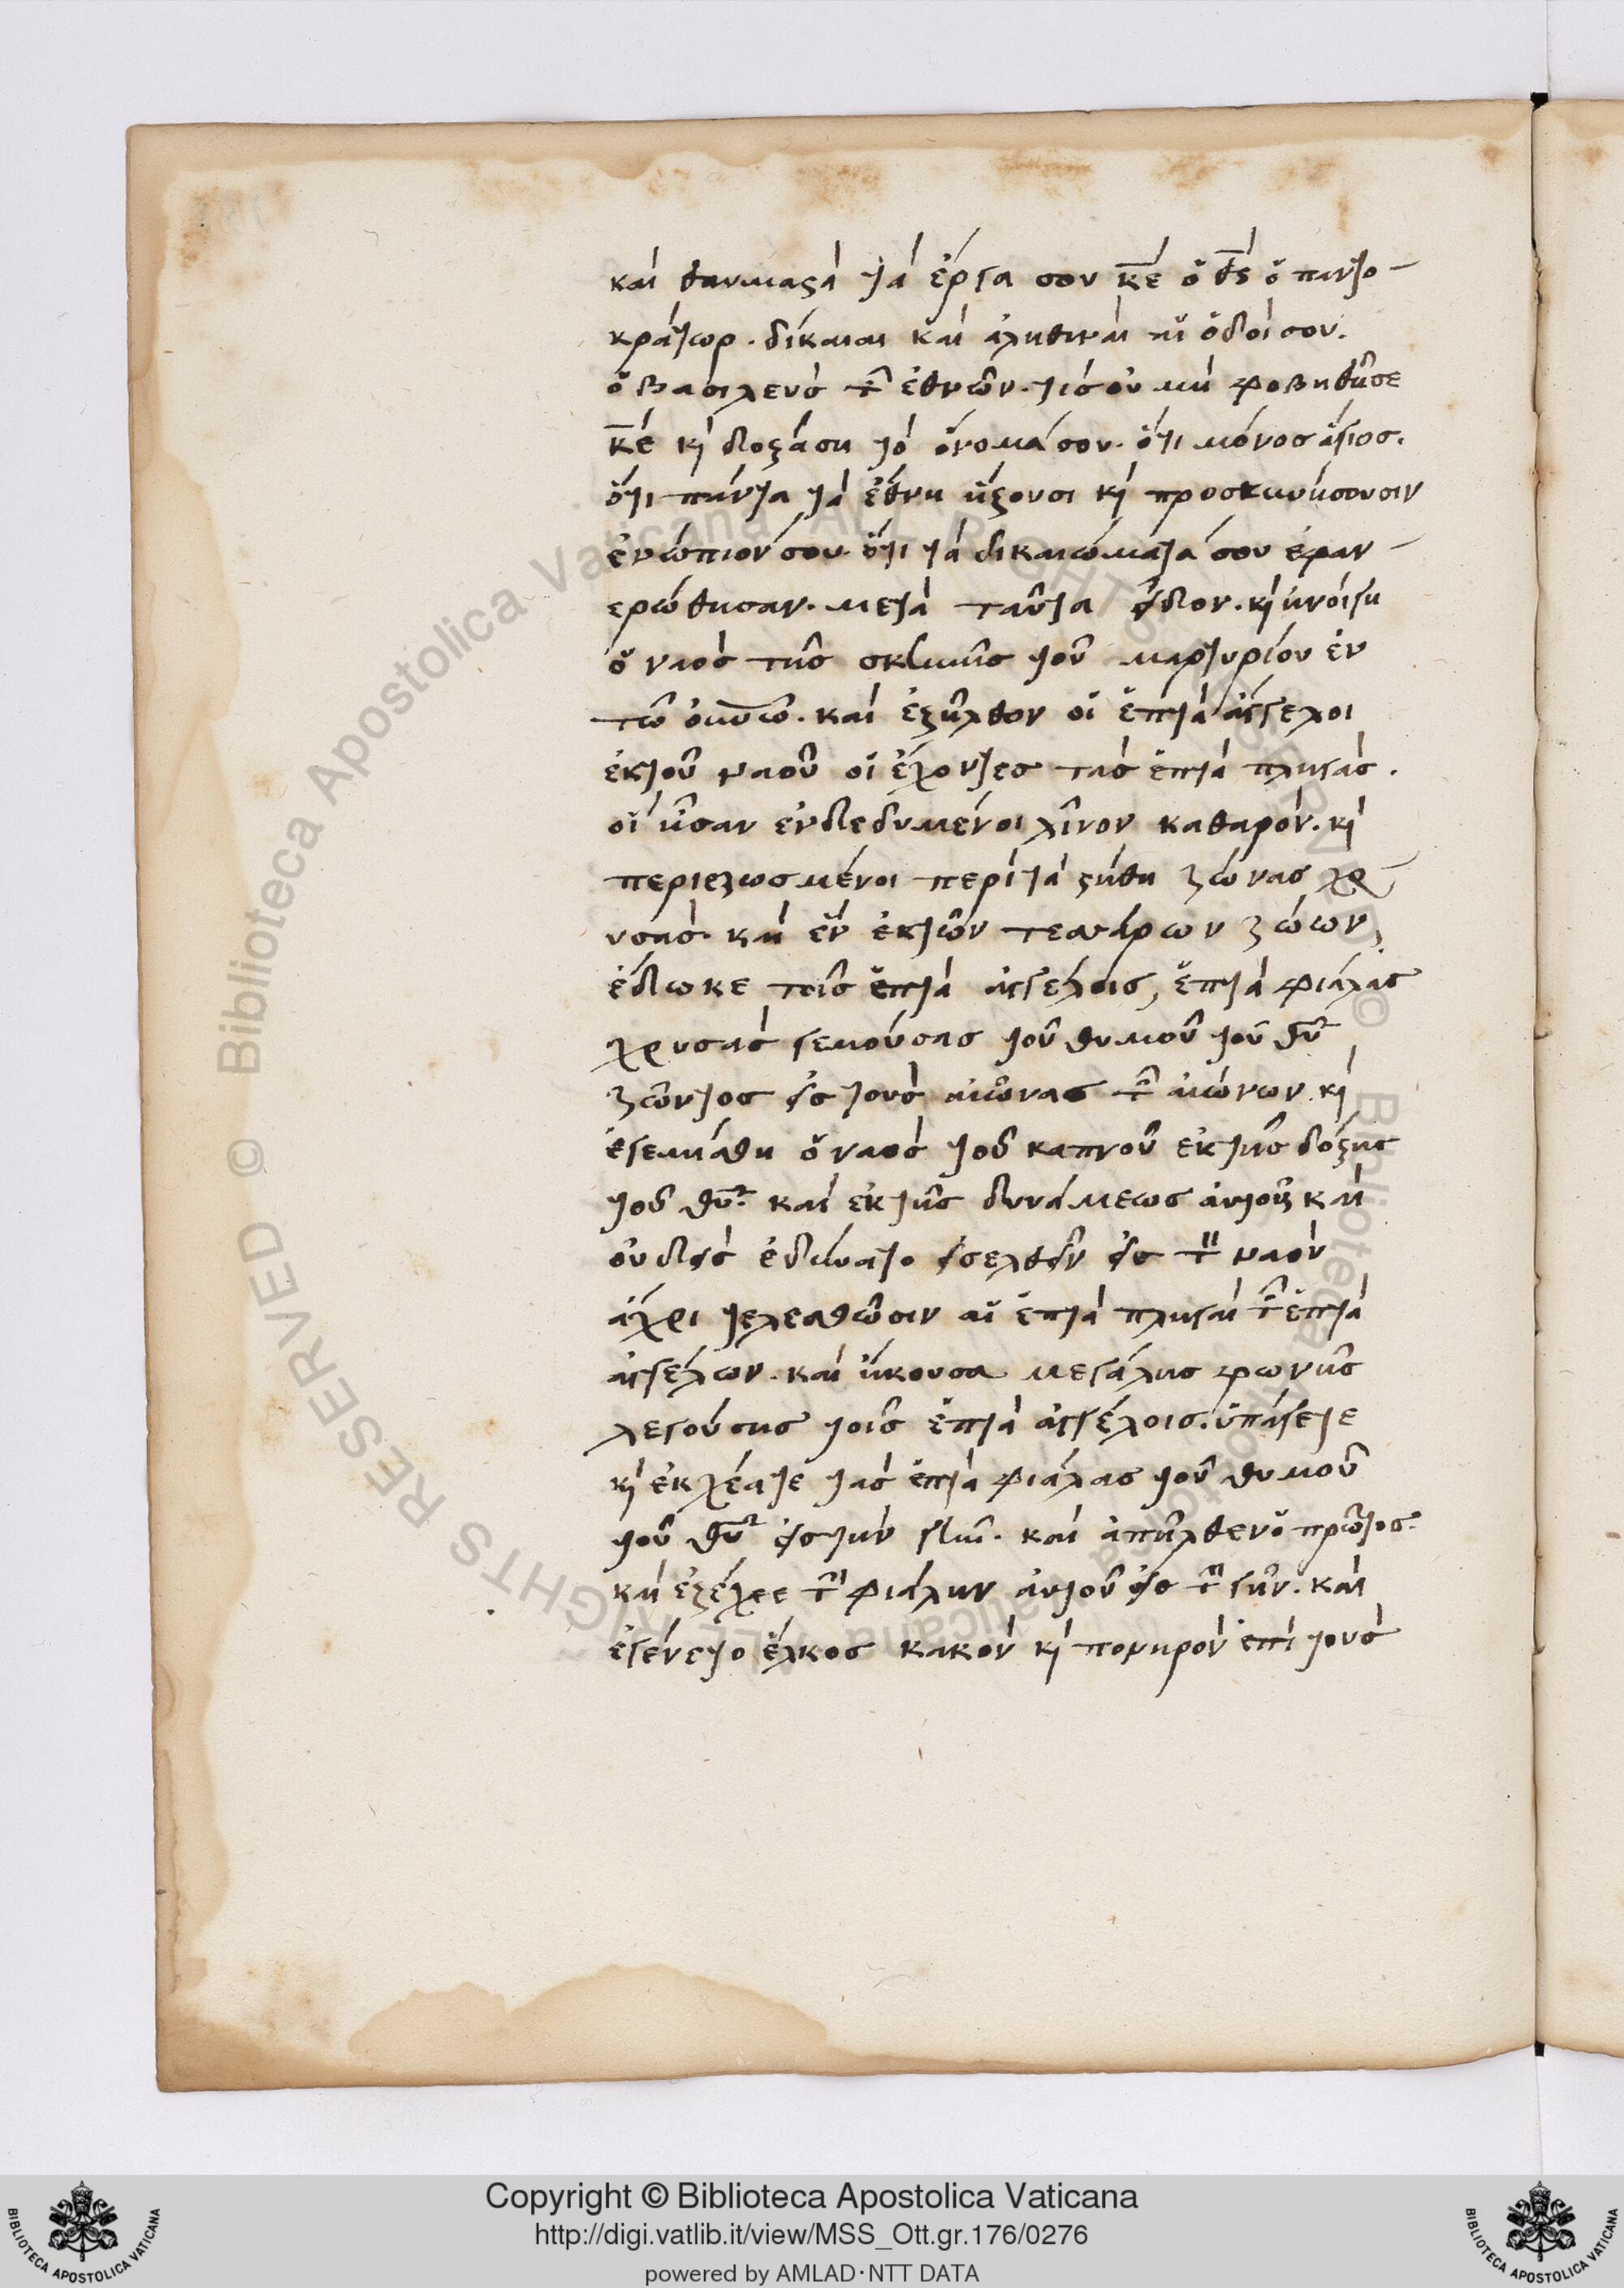 καὶ θαυμαστὰ τὰ ἔργα σου κ̅ε̅ ὁ θ̅ς̅ ὁ παντο-
κράτωρ. δίκαιαι καὶ ἀληθιναὶ αἱ ὁδοί σου.
ὁ βασιλεὺς τ῀ ἐθνῶν. τίς οὐ μὴ φοβηθῆ σε
κ̅ε̅ κὶ δοξάση τὸ ὄνομά σου. ὅτι μόνος ἅγιος.
ὅτι πάντα τὰ ἔθνη ἥξουσι κὶ προσκυνήσουσιν
ἐνώπιόν σου. ὅτι τὰ δικαιώματά σου ἐφαν-
ερώθησαν. μετὰ ταῦτα εἶδον. κὶ ἠνοίγη
ὁ ναὸς τῆς σκηνῆς τοῦ μαρτυρίου ἐν
τῶ οὐ̅νῶ̅. καὶ ἐξῆλθον οἱ ἑπτὰ ἄγγελοι
ἐκ τοῦ ναοῦ οἱ ἔχοντες τὰς ἑπτὰ πληγὰς.
οἳ ἦσαν ἐνδεδυμένοι λῖνον καθαρὸν. κὶ
περιεζωσμένοι περὶ τὰ στήθη ζώνας χρ-
υσᾶς. καὶ ἓν ἐκ τῶν τεσσάρων ζώων,
ἔδωκε τοῖς ἑπτὰ ἀγγέλοις, ἑπτὰ φιάλας
χρυσᾶς γεμούσας τοῦ θυμοῦ τοῦ θ̅υ̅
ζῶντος εἰς τοὺς αἰῶνας τ῀ αἰώνων. κὶ
ἐγεμίσθη ὁ ναὸς τοῦ καπνοῦ ἐκ τῆς δόξης
τοῦ θ̅υ̅. καὶ ἐκ τῆς δυνάμεως αὐτοῦ καὶ
οὐδεὶς ἐδύνατο εἰσελθεῖν εἰς τ̀ ναὸν
ἄχρι τελεσθῶσιν αἱ ἑπτὰ πληγαὶ τ῀ ἑπτὰ
ἀγγέλων. καὶ ἤκουσα μεγάλης φωνῆς
λεγούσης τοῖς ἑπτὰ ἀγγέλοις. ὑπάγετε
κὶ ἐκχέατε τὰς ἑπτὰ φιάλας τοῦ θυμοῦ
τοῦ θ̅υ̅ εἰς τὴν γῆν. καὶ ἀπῆλθεν ὁ πρῶτος.
καὶ ἐξέχεε τ̀ φιάλην αὐτοῦ εἰς τ̀ γῆν. καὶ
ἐγένετο ἕλκος κακὸν κὶ πονηρὸν ἐπὶ τοὺς
Copyright © Biblioteca Apostolica Vaticana
http://digi.vatlib.it/view/MSS_Ott.gr.176/0276
powered by AMLAD·NTT DATA